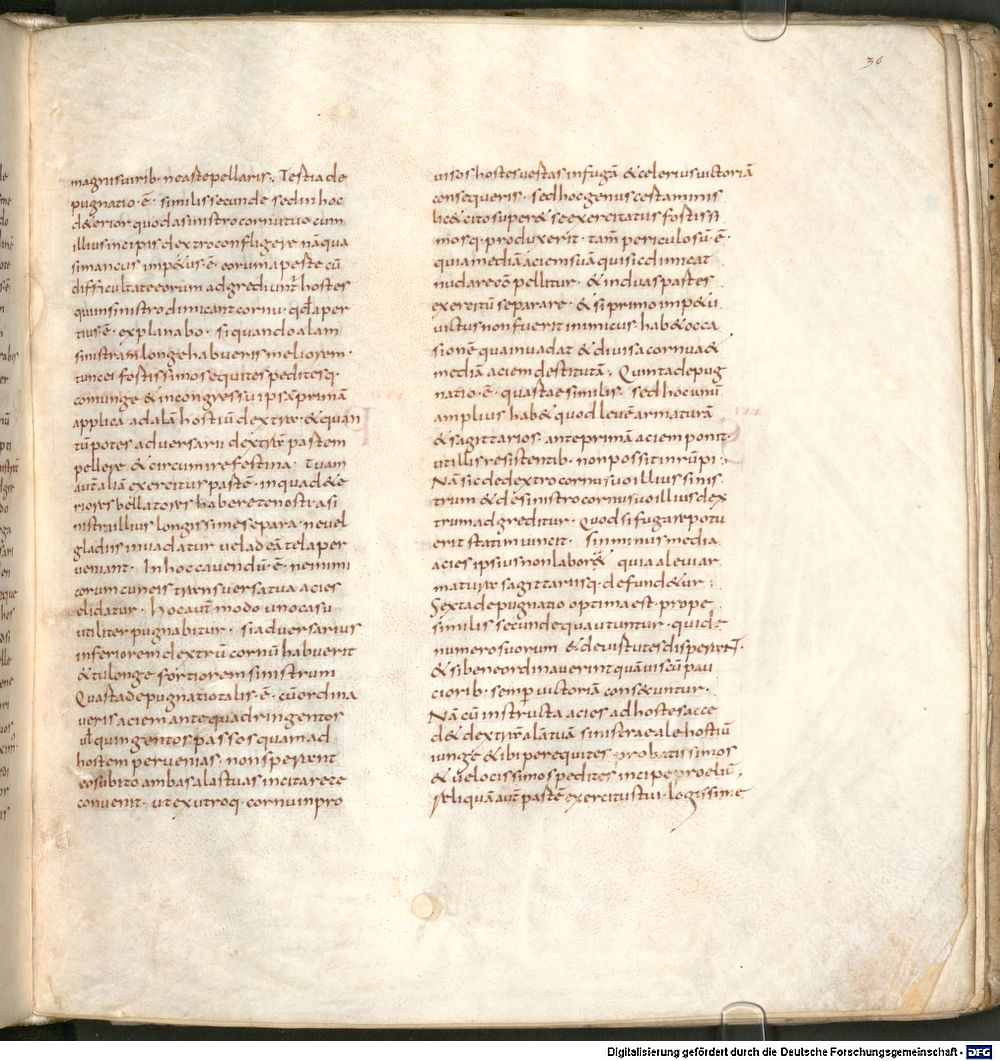 36
magnisuirib· neaste pellaris·, Tertia de
pugnatio·ē· similis secunde sed in hoc
d&erior quod a sinistro cornu tuo cum
illius incipis dextro confligere nā qua
si mancus imp&us·ē· eorum aperte cū
difficultate eorum adgrediunt̄ hostes
qui in sinistro dimicant cornu· qđ aper
tius·ē· explanabo· si quando alam
sinistram longe habueris meliorem·
tunc ei fortissimos equites peditesq·
coniunge & in congressu ipsā primā
applica ad alā hostiū dextrā· & quan
tū potes adversarii dextrā partem
pellere & circumire festina· Tuam
aut̄ aliā exercitus partē· in qua d&e
riores bellatores habere te nosti a si
nistra illius longissime separa· ne uel
gladiis inuadatur uel ad eā tela per
ueniant· In hoc cauendū·ē· ne inimi
corum cuneis transuersa tua acies
elidatur· hoc aut̄ modo uno casu
utiliter pugnabitur· si aduersarius
inferiorem dextrū cornū habuerit
& tu longe fortiorem sinistrum
Quarta depugnatio talis·ē· cū ordina
ueris aciem ante quadringentos
ul̄ quingentos passos quam ad
hostem peruenias· non sperant
eo subito ambas alas tuas incitare te
conuenit· ut ex utroq· cornu inpro
uisos hostes uertas in fugā & celerius uictoriā
consequeris· sed hoc genus certaminis
lic& cito super& se exercitatus fortissi
mosq· produxerit· tam̄ periculosū·ē·
quia mediā aciem suā qui sic dimicat
nudare c̄pellitur· & in duas partes
exercitū separare· & si primo imp&u
uictus non fuerit inimicus· hab& occa
sionē qua inuadat & diuisa cornua &
mediā aciem destitutā·, Quinta depug
natio·ē· quartae similis· sed hoc unū
amplius hab& quod leuē armaturā
& sagittarios· ante primā aciem ponit·
ut illis resistentib· non possit inrūpi·,
Nā sic de dextro cornu suo illius sinis
trum & de sinistro cornu suo illius dex
trum adgreditur· Quod si fugare potu
erit statim uincit· sin minus media
acies ipsius non labor& quia a leui ar
matura sagittariisq· defund&ur·,
Sexta depugnatio optima est· prope
similis secunde qua utuntur· qui de
numero suorum & de uirtute disperant·
& si bene ordinauerint quāuis cū pau
ciorib· semp̄ uictoriā consecuntur·
Nā cū instructa acies ad hostes acce
d& dextrā alā tuā sinistrae ale hostiū
iunge & ibi per equites probatissimos
& uelocissimos pedites incipe proeliū·,
reliquā aut̄ partē exercitus tui· logissime
Digitalisierung gefördert durch die Deutsche Forschungsgemeinschaft - DFG